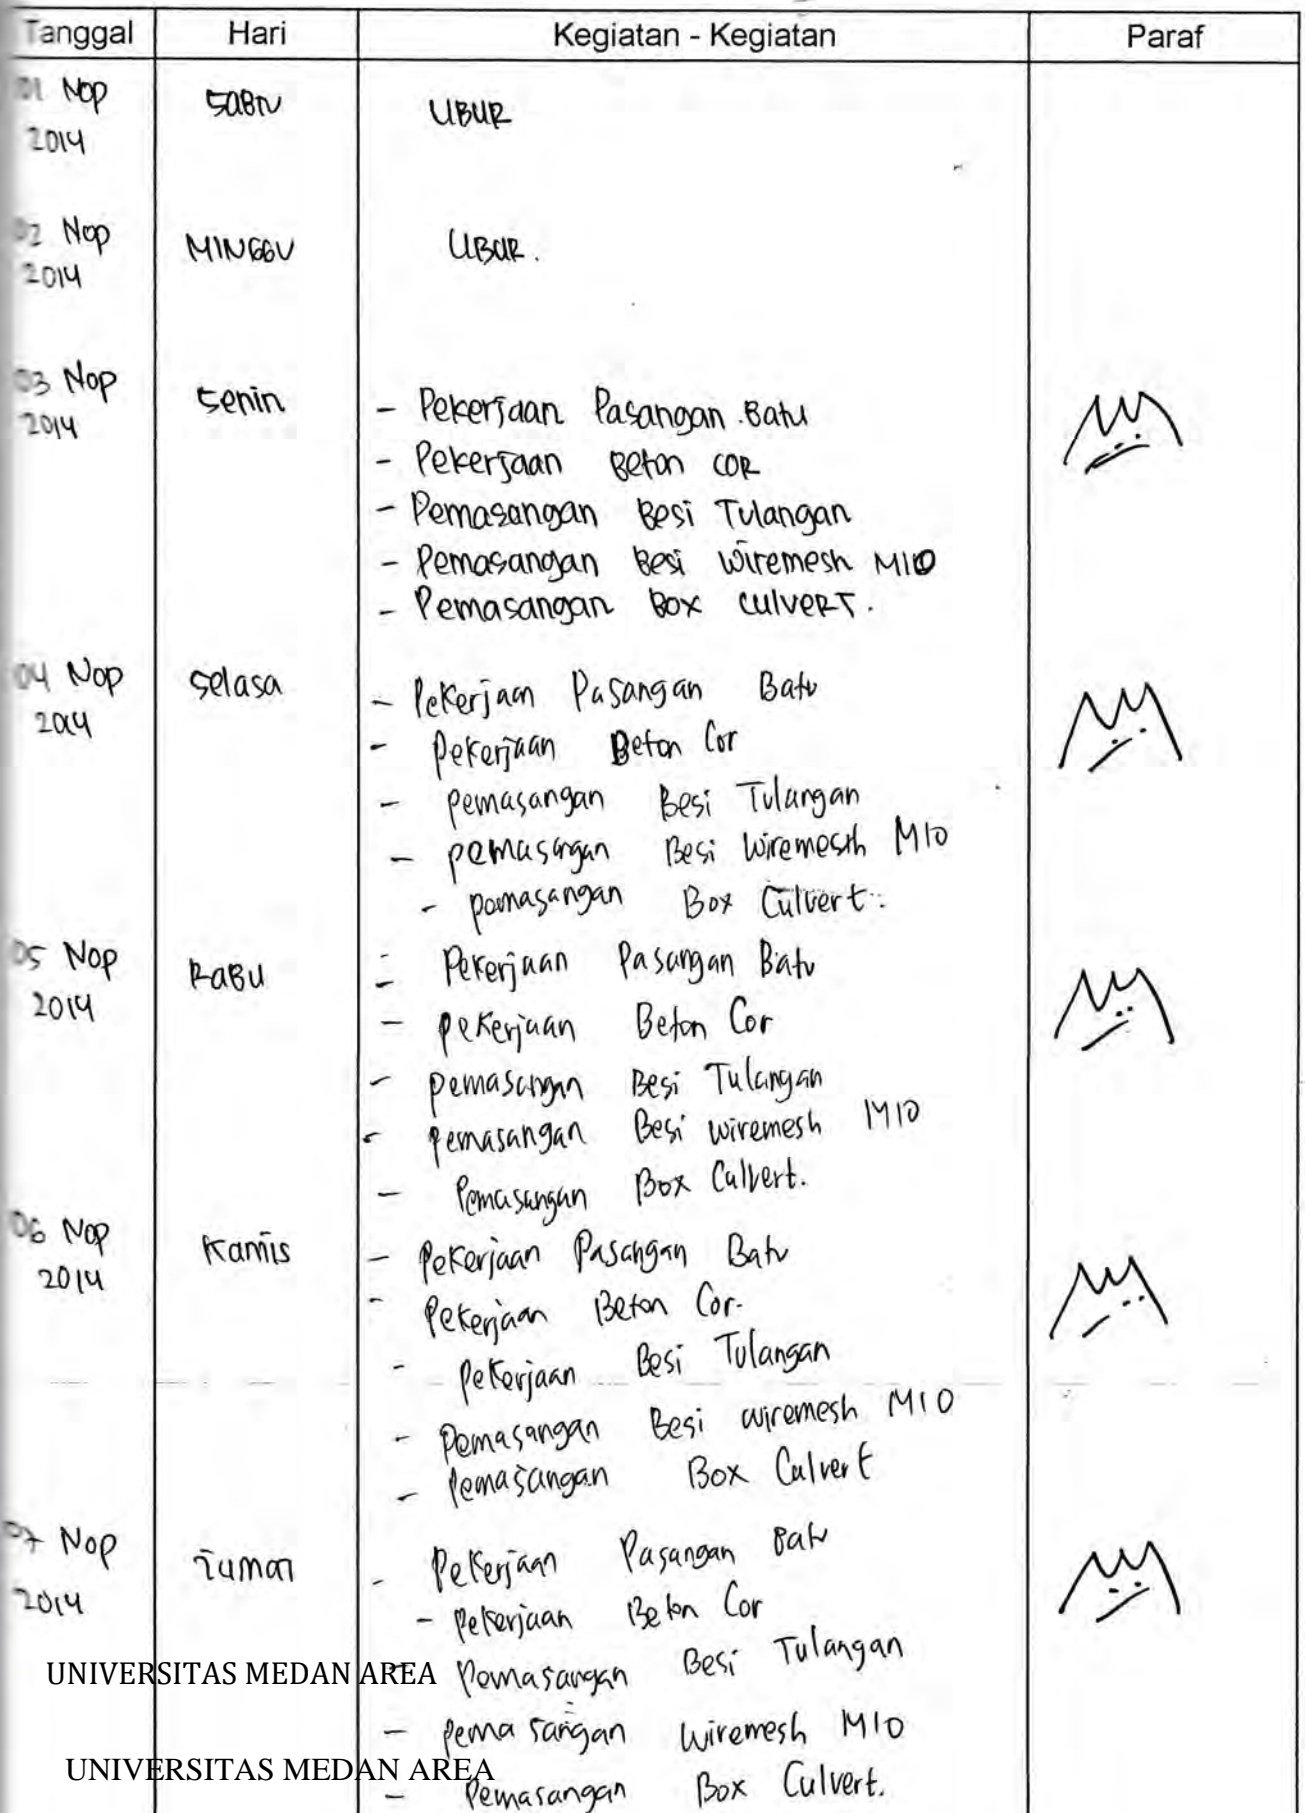 Tanggal Hari Kegiatan - Kegiatan Paraf
01 Nop SABTU LIBUR
2014
02 Nop MINGGU LIBUR.
2014
03 Nop Senin - Pekerjaan Pasangan Batu
2014
- Pekerjaan Beton COR
- Pemasangan Besi Tulangan
- Pemasangan Besi Wiremesh M10
- Pemasangan Box CULVERT.
04 Nop Selasa - Pekerjaan Pasangan Batu
2014
- Pekerjaan Beton Cor
- Pemasangan Besi Tulangan
- Pemasangan Besi Wiremesh M10
- Pemasangan Box Culvert.
05 Nop RABU - Pekerjaan Pasangan Batu
2014
- Pekerjaan Beton Cor
- Pemasangan Besi Tulangan
- Pemasangan Besi wiremesh M10
- Pemasangan Box Culvert.
06 Nop Kamis - Pekerjaan Pasangan Batu
2014
- Pekerjaan Beton Cor.
- Pekerjaan Besi Tulangan
- Pemasangan Besi wiremesh M10
- Pemasangan Box Culvert
07 Nop Jumat - Pekerjaan Pasangan Batu
2014
- Pekerjaan Beton Cor
UNIVERSITAS MEDAN AREA - Pemasangan Besi Tulangan
- Pemasangan Wiremesh M10
UNIVERSITAS MEDAN AREA
- Pemasangan Box Culvert.